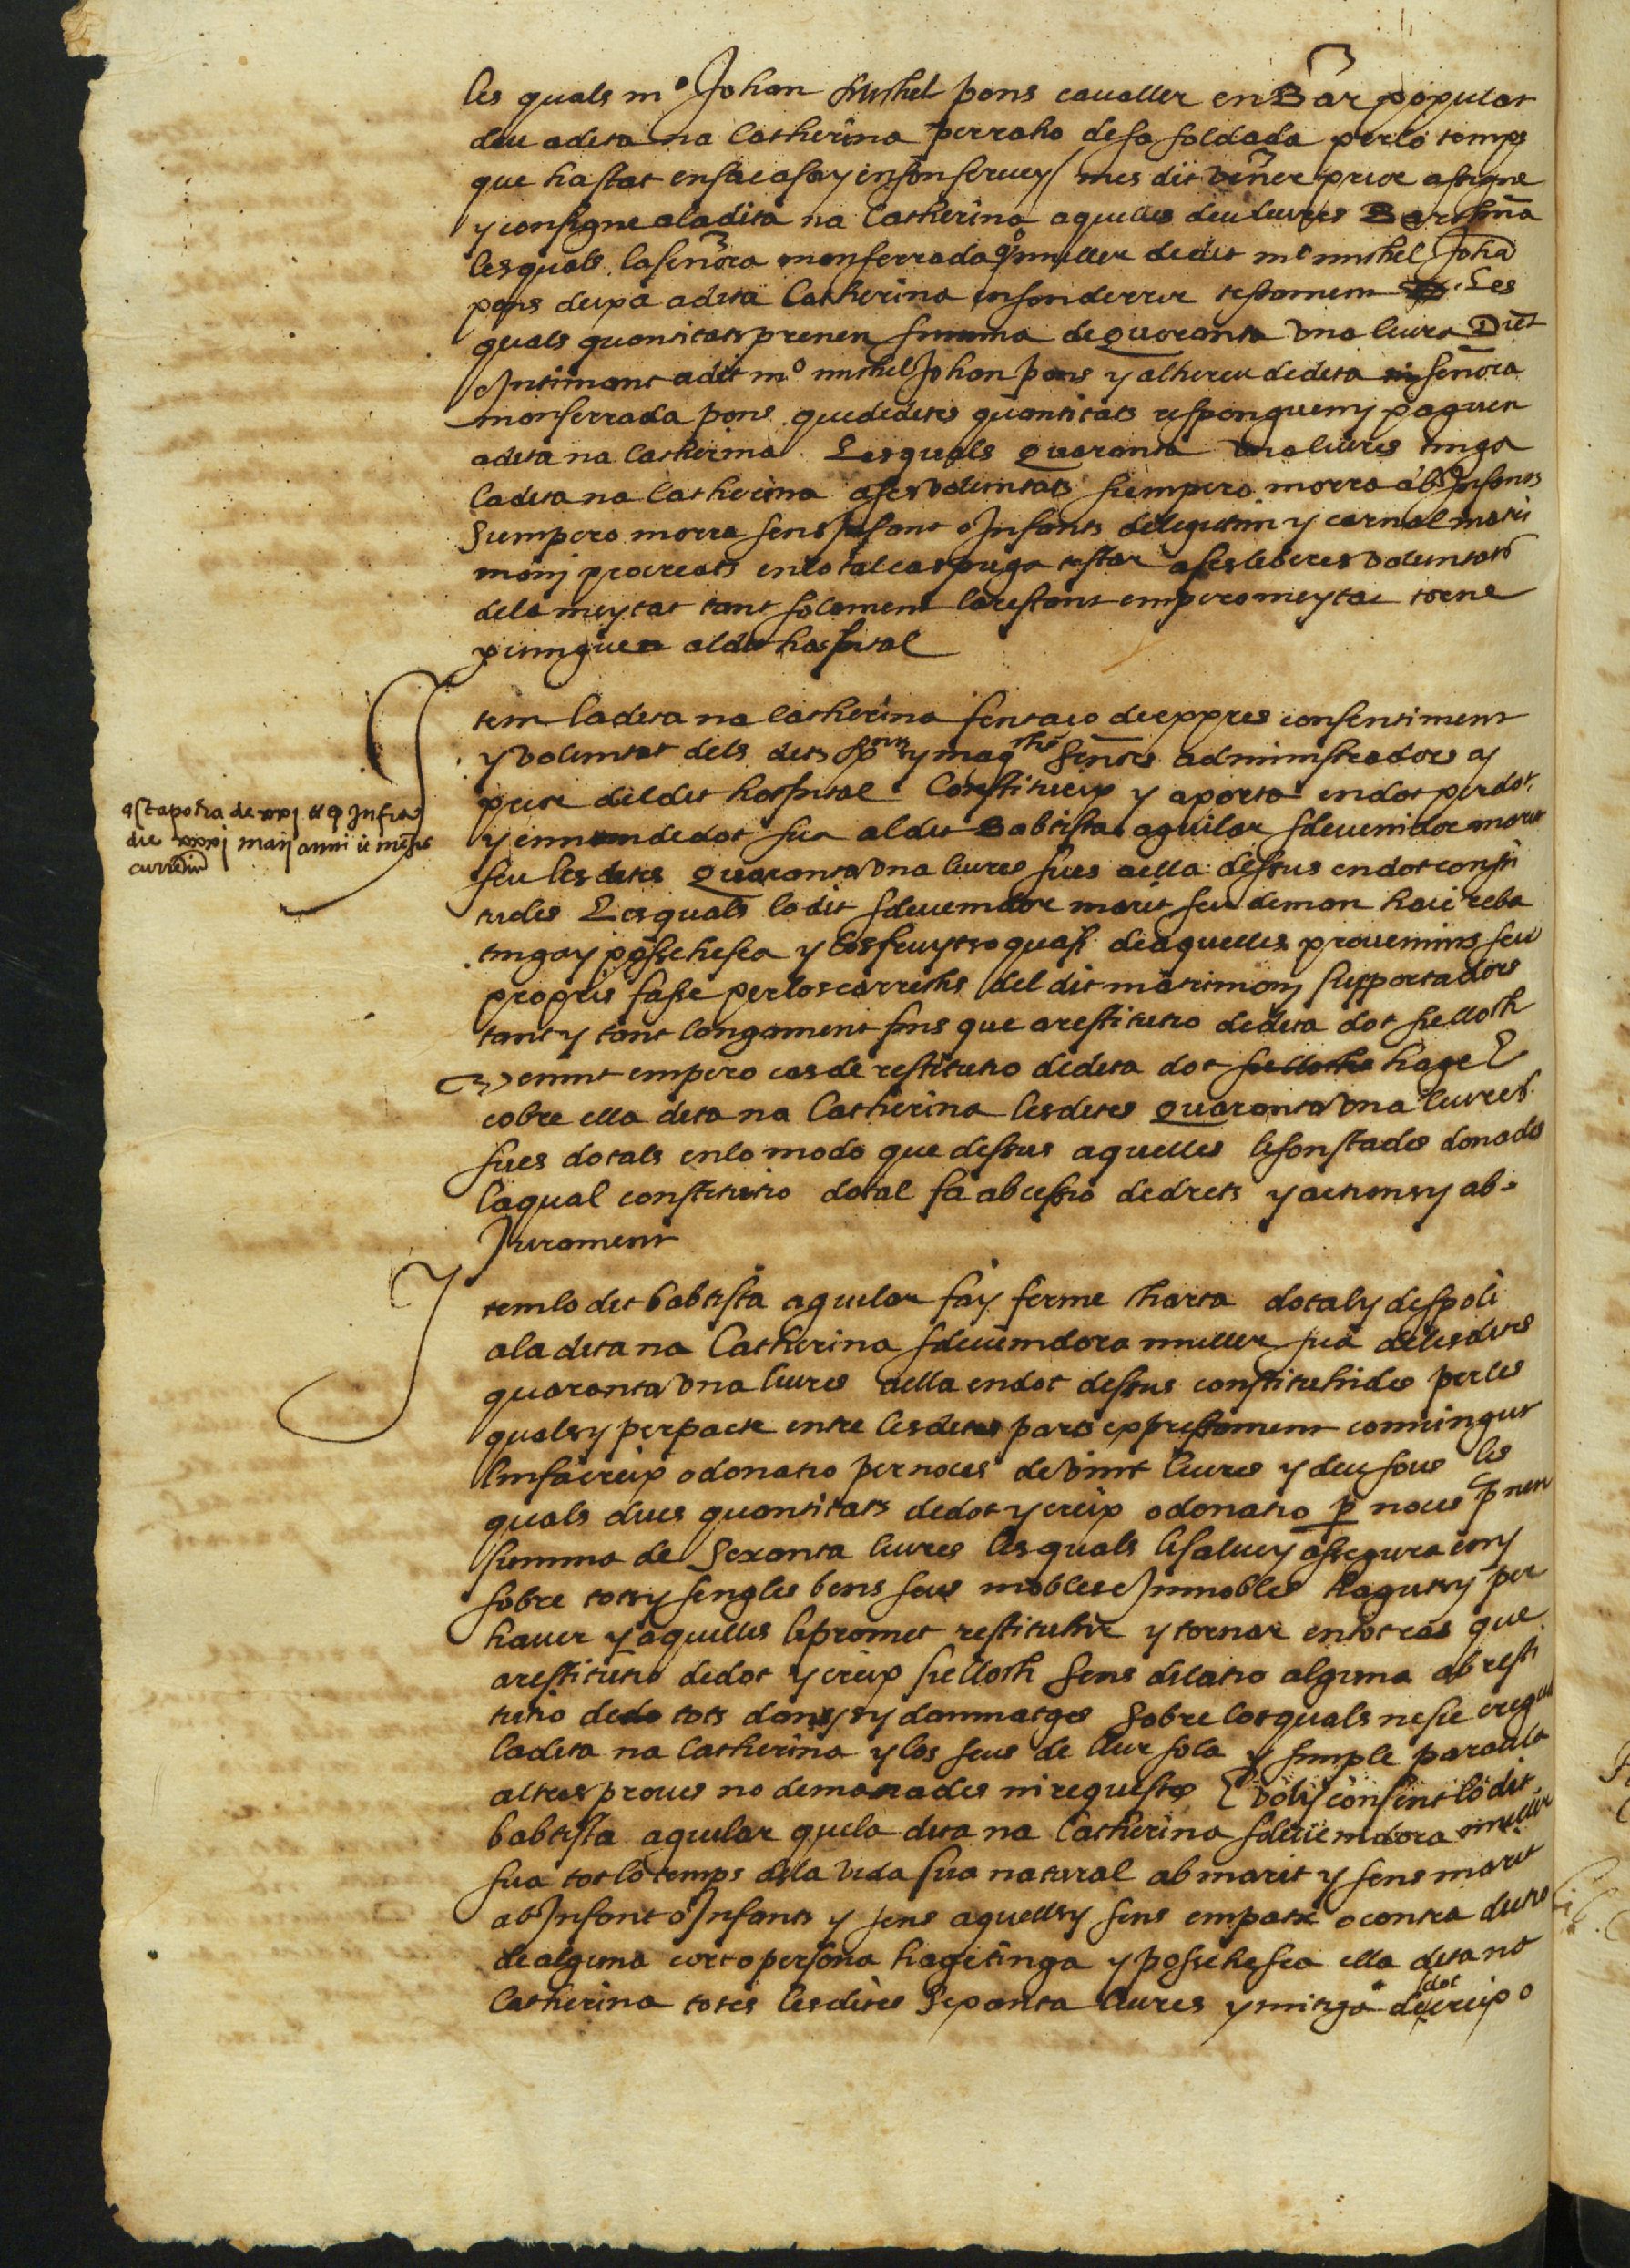 les quals mº Johan michel pons cavaller en Bar populat
deu a dita na Catherina per raho de sa soldada per lo temps
que ha stat en sa casa y en son servey / mes dit vener prior assigne
y consigne a la dita na Catherina aquelles deu liures Barchna
les quals la senora monserrada qº muller de dit mº michel Joha
pons deixa a dita Catherina en son derrer testament. Les
quals quantitats prenen summa de Quoranta vna liura Dient
e Intimant a dit mº michel Johan pons y al hereu de dita senora
monserrada pons que de dites quantitats responguen y paguen
a dita na Catherina. Les quals Quoranta vna liures tinga
la dita na Catherina a ses voluntats si empero morra ab Infants
Si empero morra sens Infant o Infants de legitim y carnal matri
moni procreats en lo tal cas puga testar a ses liberes voluntats
de la meytat tant solament la restant empero meytat torne
pervingue al dit hospital
Item la dita na Catherina fent aço de exppres consentiment
y voluntat dels dits spbs y magchs Señors administradors y
prior del dit hospital Constitueix y aporta en dot per dot
y en nom de dot sua al dit Babtista aguilar sdevenidor marit
seu les dites Quoranta vna liures sues a ella dessus en dot consti
tuides Les quals lo dit sdevenidor marit seu deman haie reba
tinga y possehesca y los fruyts o quasi de aquelles provenints seus
propris fasse per los carrechs del dit matrimoni supportadors
tant y tant longament fins que a restitutio de dita dot sie lloch
Venint empero cas de restitutio de dita dot sie lloch hage E
cobre ella dita na Catherina les dites Quoranta vna liures
sues dotals en lo modo que dessus aquelles le son stades donades
la qual constitutio dotal fa ab cessio de drets y actions y ab
Jurament
Item lo dit babtista aguilar fa y ferme charta dotal y despoli
a la dita na Catherina sdevenidora muller sua de les dites
quoranta vna liures a ella en dot dessus constituhides per les
quals y per pacte entre les dites parts expressament convingut
lin fa creix o donatio per noces de vint liures y deu sous les
quals dues quantitats de dot y creix o donatio p noces pnen
summa de Sexanta liures les quals le salue y assegura en y
sobre tots y sengles bens seus mobles e Immobles haguts y per
hauer y aquelles le promet restituhir y tornar en tot cas que
a restitutio de dot y creix sie lloch Sens dilatio alguna ab resti
tutio de tots danys y dammatges Sobre los quals ne sie cregud
la dita na Catherina y los seus de llur sola y simple paraula
altres proves no demanades ni requestes E vol y consent lo dit
babtista aguilar que la dita na Catherina sdevenidora muller
sua tot lo temps de la vida sua natural ab marit y sens marit
ab Infant o Infants y sens aquells y sens empatx o contra dictio
de alguna cort o persona hage tinga y possehesca ella dita na
Catherina totes les dites Sexanta liures y mitga de dot creix o
die xxxi maij anni